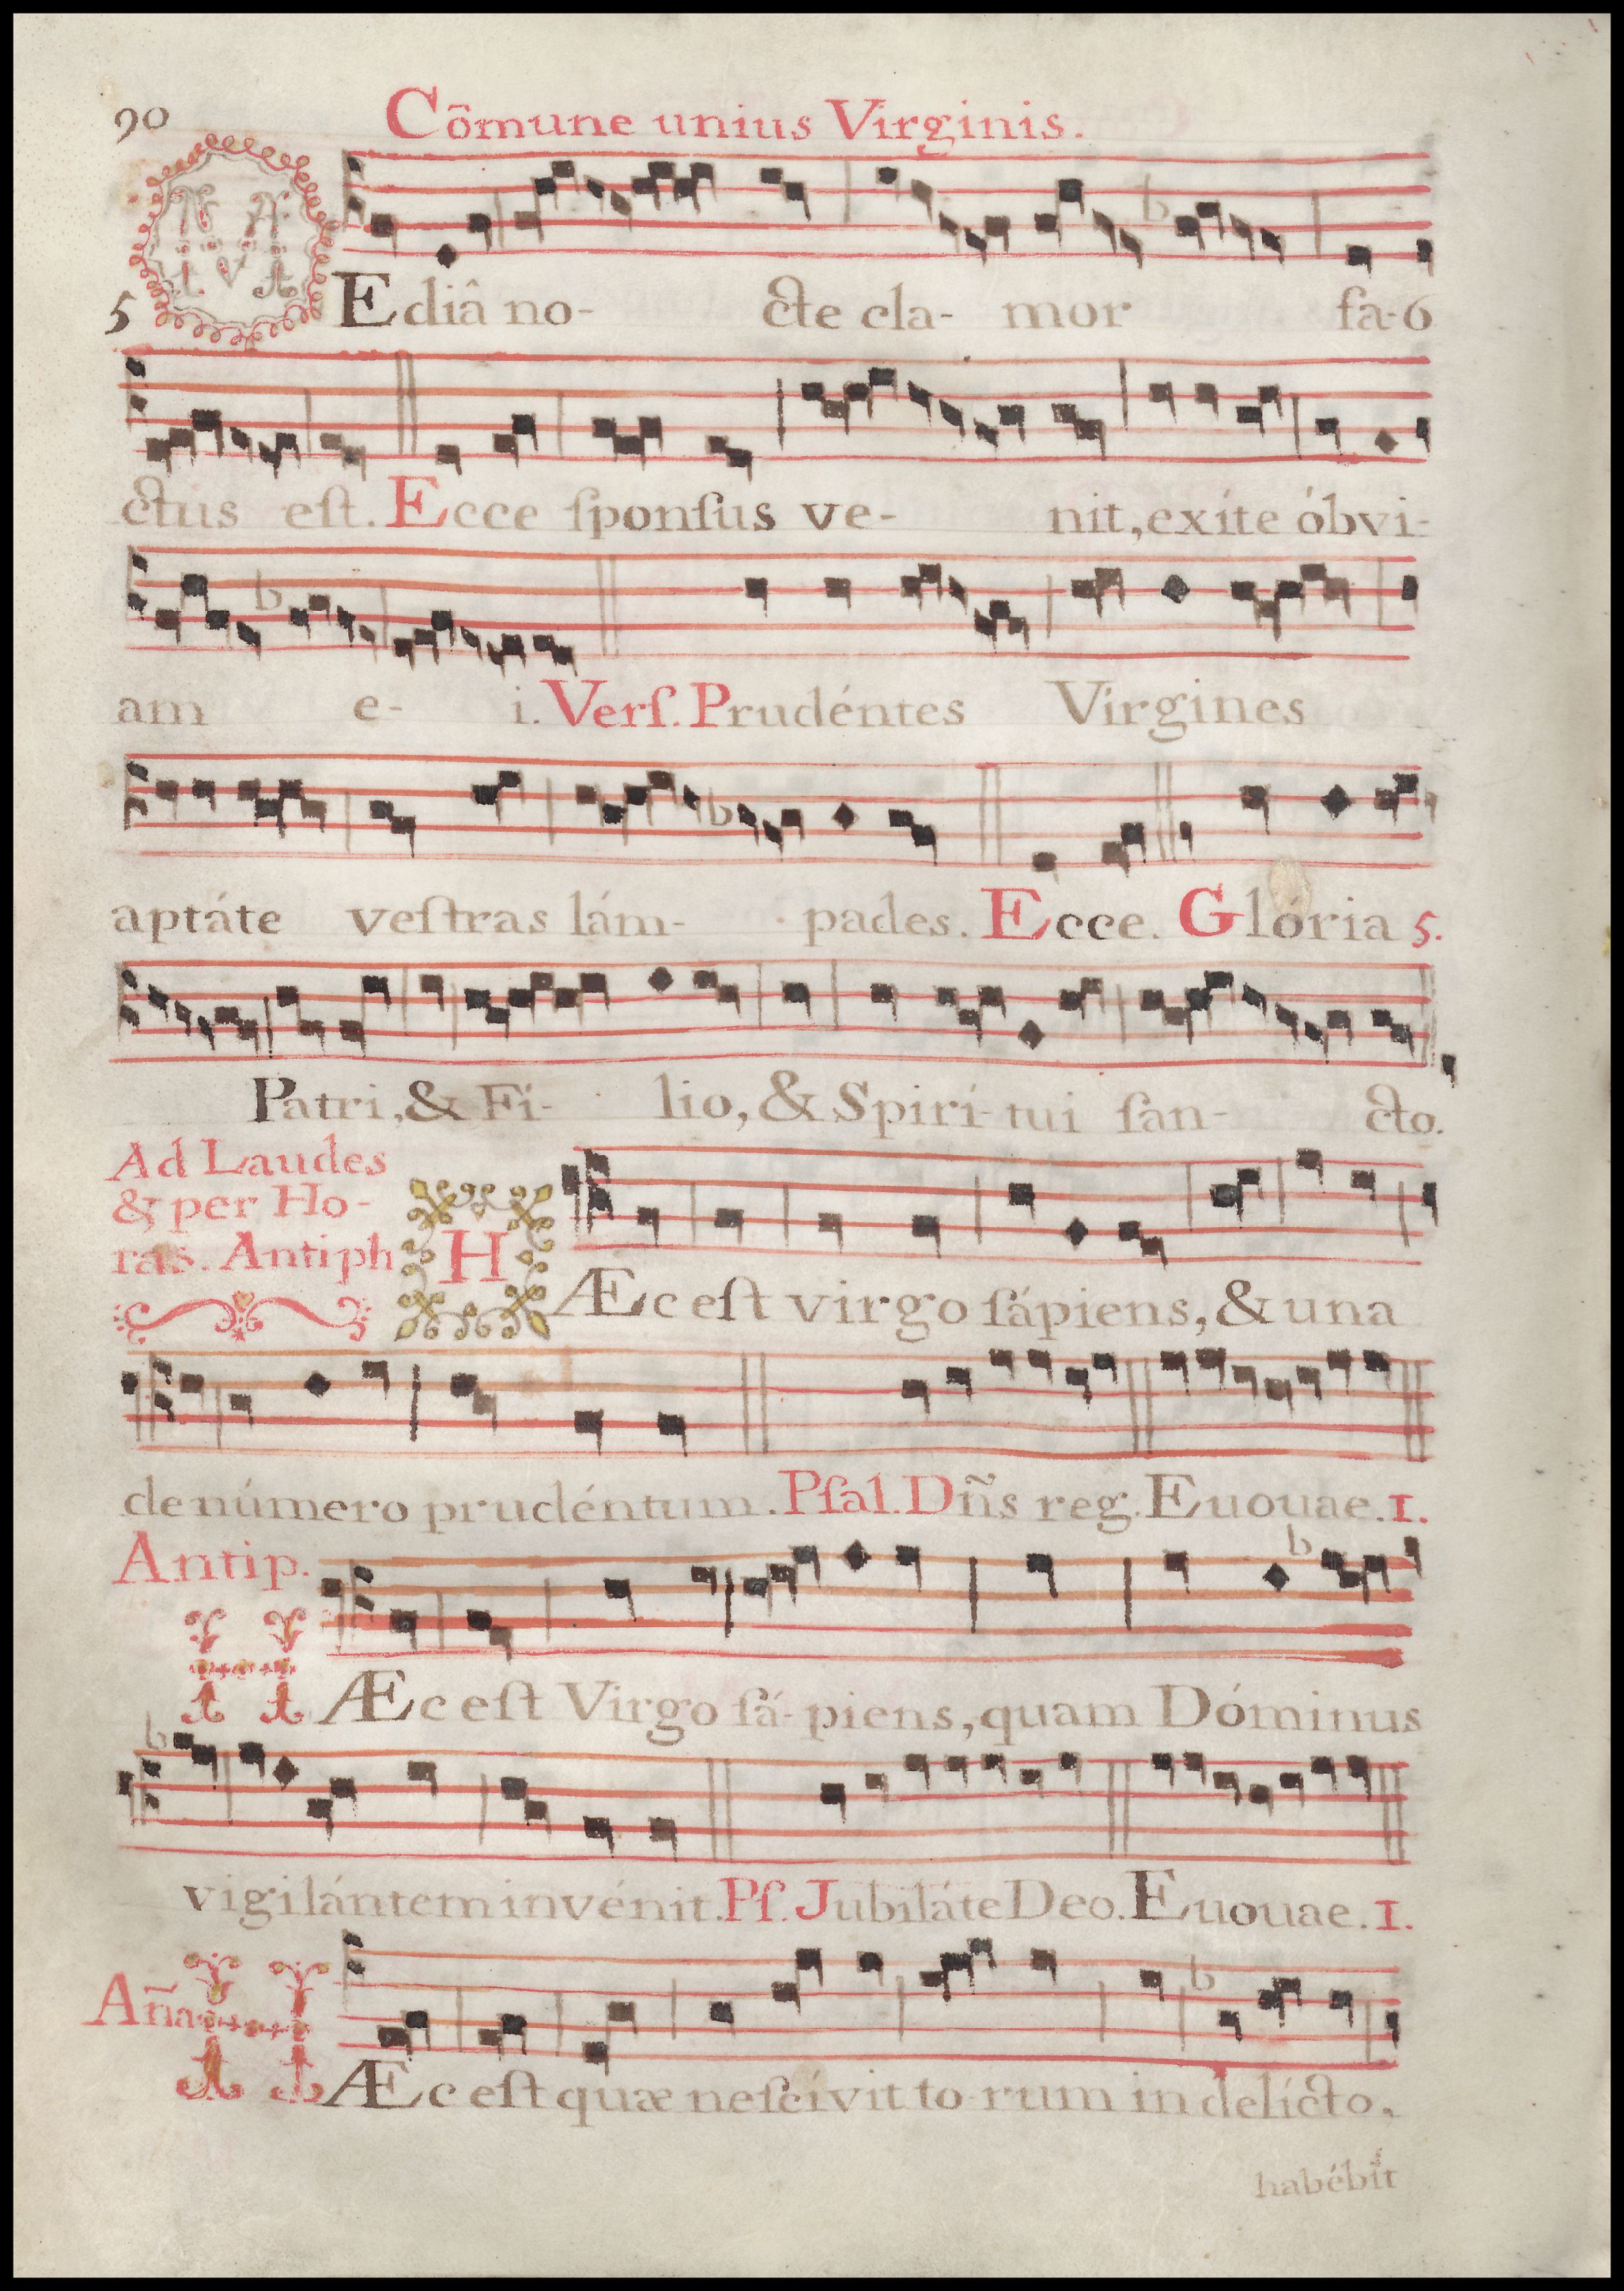 90
Cõmune unius Virginis.
5 MEdiâ no- cte cla- mor fa-6
ctus eſt. Ecce ſponſus ve- nit, exíte óbvi-
am e- i. Verſ. Prudéntes Virgines
aptáte veſtras lám- pades. Ecce. Glória 5.
Patri, & Fí- lio, & Spirí-tui ſan- cto.
Ad Laudes
& per Ho-
ras. Antiph
HÆc eſt virgo ſápiens, & una
de número prudéntum. Pſal. Dñs reg. Euouae. 1.
Antip.
HÆc eſt Virgo ſá-piens, quam Dóminus
vigilántem invénit. Pſ. Jubiláte Deo. Euouae. 1.
Aña HÆc eſt quæ neſcívit to-rum in delícto,
habébit